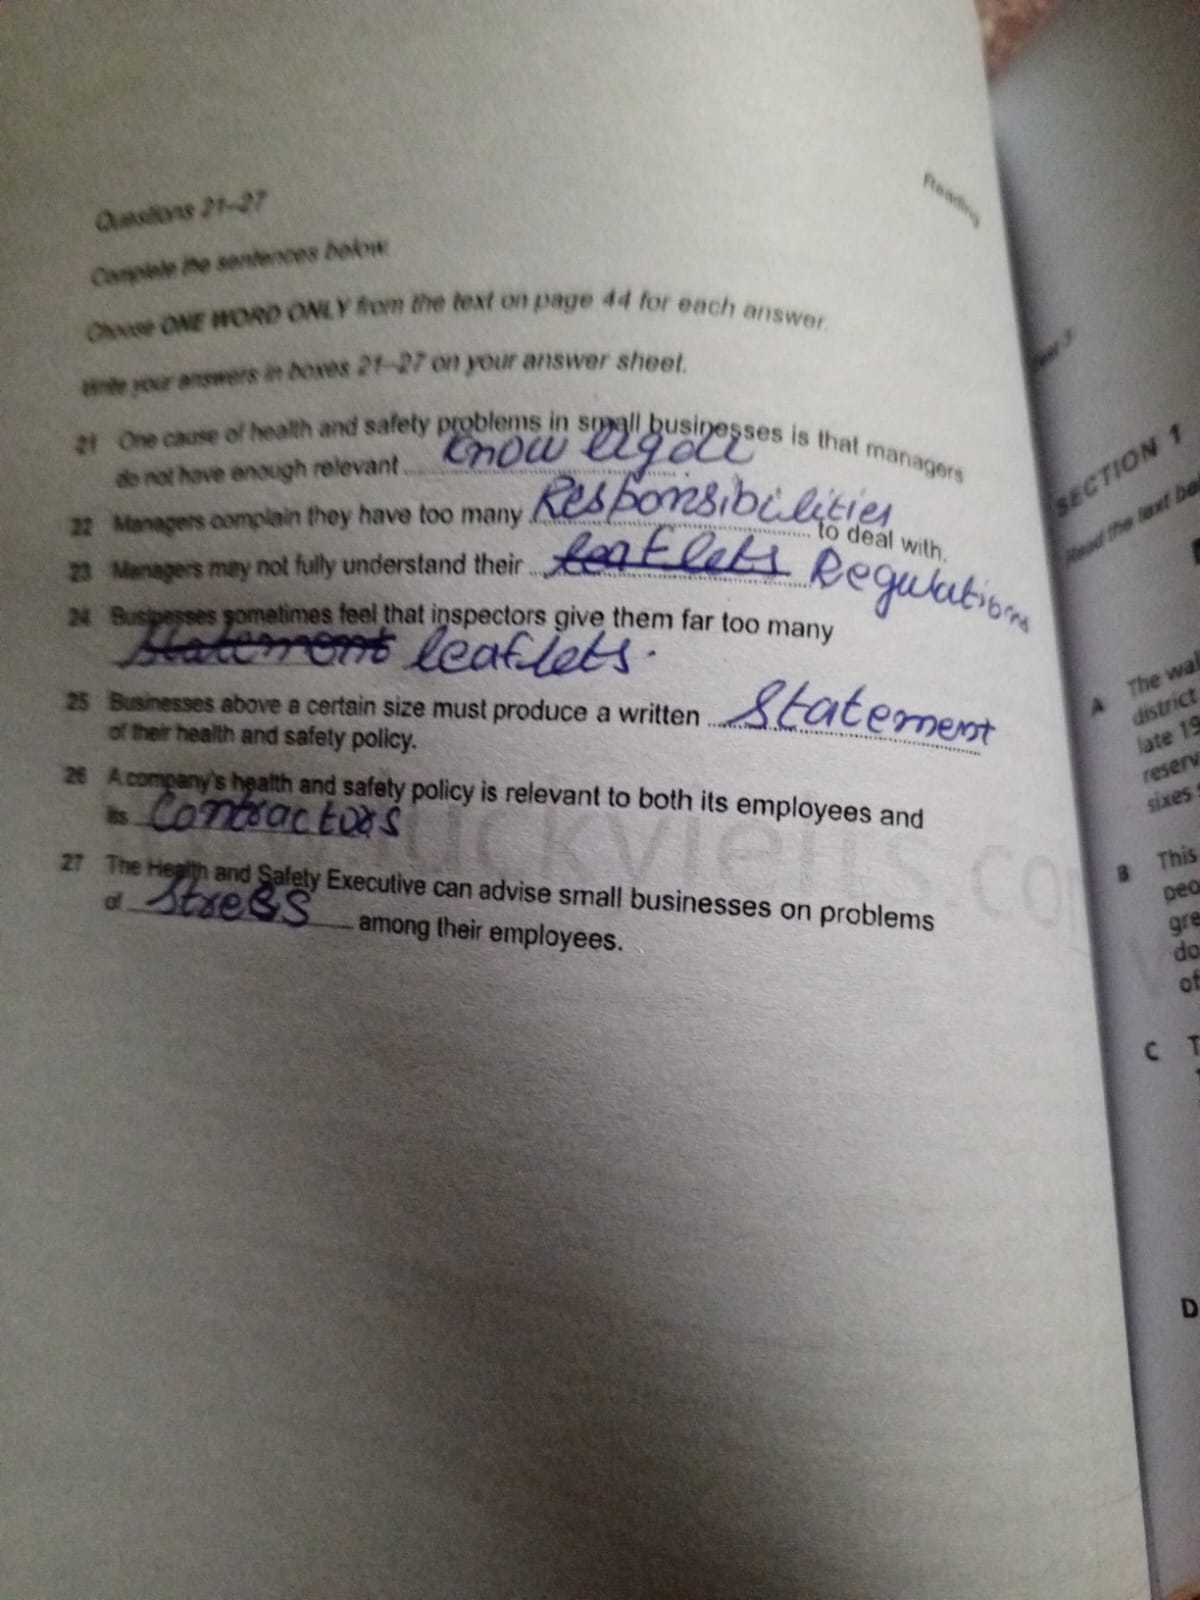 Reading
Questions 21–27
Complete the sentences below.
Choose ONE WORD ONLY from the text on page 44 for each answer.
Write your answers in boxes 21–27 on your answer sheet.
21 One cause of health and safety problems in small businesses is that managers
do not have enough relevant know
22 Managers complain they have too many Responsibilities to deal with.
23 Managers may not fully understand their leaflets Regulations
24 Businesses sometimes feel that inspectors give them far too many
statement leaflets.
25 Businesses above a certain size must produce a written Statement
of their health and safety policy.
26 A company's health and safety policy is relevant to both its employees and
its Contractors
27 The Health and Safety Executive can advise small businesses on problems
of Stress among their employees.
SECTION 1
Read the text
A The
district
late 19
sixes
B This
C
D